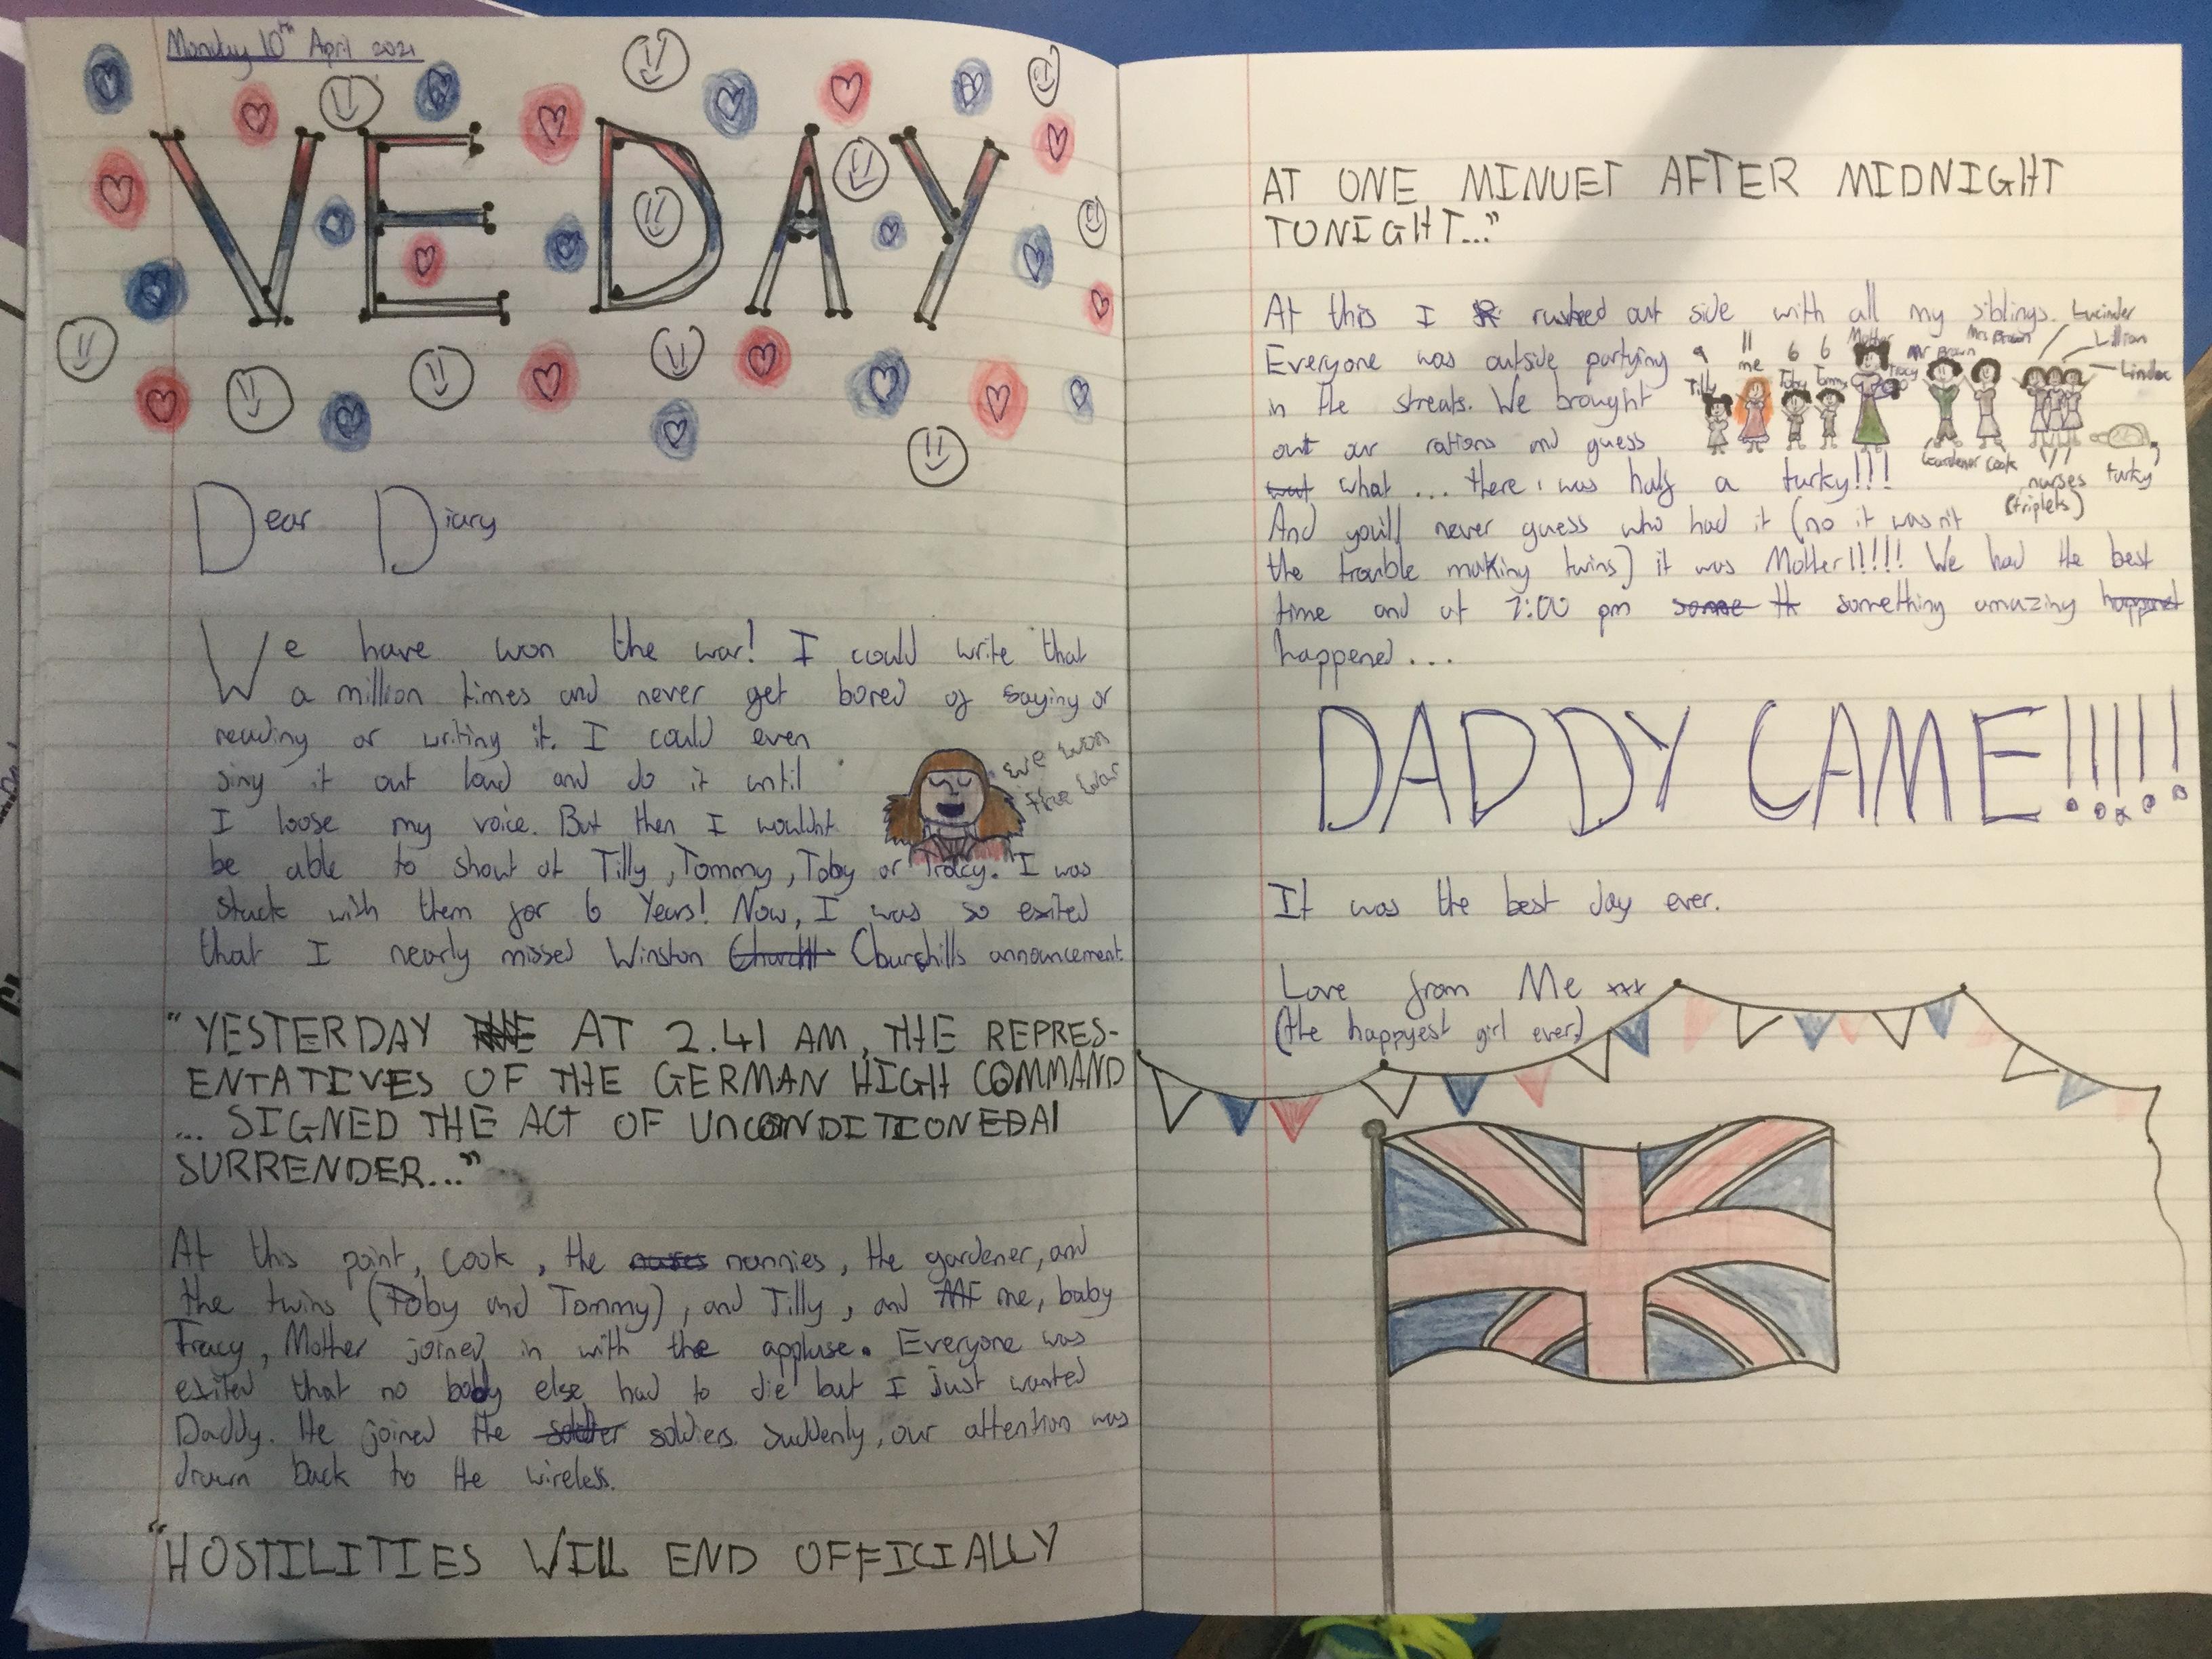 Monday 10th April 2021
VE DAY
Dear Diary
We have won the war! I could write that
a million times and never get bored of saying or
reading or writing it. I could even
sing it out loud and do it until
we won
the war
I loose my voice. But then I wouldnt
be able to shout at Tilly, Tommy, Toby or Tracy. I was
stuck with them for 6 Years! Now, I was so exited
that I nearly missed Winston Churchills announcement.
"YESTERDAY AT 2.41 AM, THE REPRES-
ENTATIVES OF THE GERMAN HIGH COMMAND
... SIGNED THE ACT OF
SURRENDER..."
At this point, Cook, the nannies, the gardener, and
the twins (Toby and Tommy), and Tilly, and me, baby
Tracy, Mother joined in with the appluse. Everyone was
exited that no body else had to die but I just wanted
Daddy. He joined the soldiers. Suddenly, our attention was
drawn back to the wireless.
"HOSTILITIES WILL END OFFICIALLY
AT ONE MINUET AFTER MIDNIGHT
TONIGHT..."
At this I rushed out side with all my siblings.
Everyone was outside partying
in the streats. We brought
out our rations and guess
what ... there was half a turky!!!
9 11 6 6
Tilly me Toby Tommy Mother Tracy Mr Brown Mrs Brown Lucinder
Lillian
Linda
Gardener Cook nurses turky
(triplets)
And you'll never guess who had it (no it wasn't
the trouble making twins) it was Mother!!!!! We had the best
time and at 7:00 pm something amazing
happened...
DADDY CAME!!!!!
It was the best day ever.
Love from Me xxx
(the happyest girl ever)